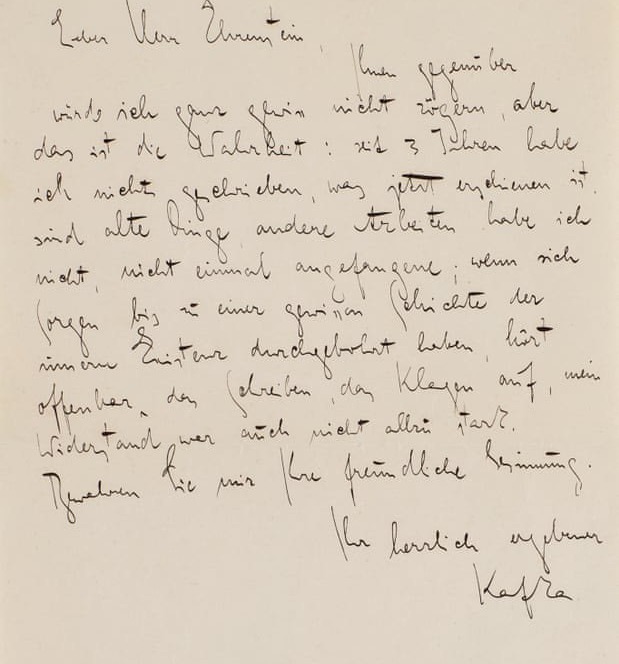 Lieber Herr Ehrenstein,
Ihnen gegenüber
würde ich ganz gewiss nicht zögern, aber
das ist die Wahrheit: seit 3 Jahren habe
ich nichts geschrieben, was jetzt erschienen ist,
sind alte Dinge, andere Arbeiten habe ich
nicht, nicht einmal angefangene; wenn sich
Sorgen bis zu einer gewissen Schichte der
innern Existenz durchgebohrt haben, hört
offenbar das Schreiben, das Klagen auf, mein
Widerstand war auch nicht allzu stark.
Bewahren Sie mir Ihre freundliche Gesinnung.
Ihr herzlich ergebener
Kafka